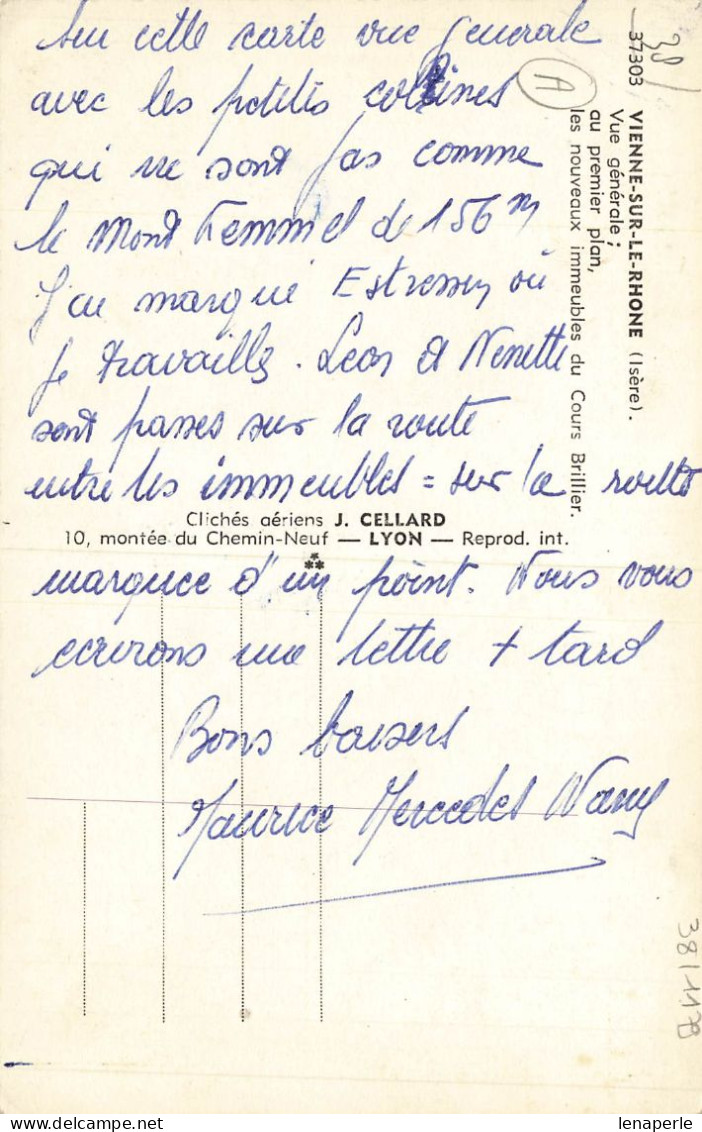 Sur cette carte vue generale
avec les petites collines
qui ne sont pas comme
le Mont Kemmel de 156 m
J'ai marqué Estressin où
je travaille. Leon et Nenette
sont passes sur la route
entre les immeubles = sur la route
marquee d'un point. Nous vous
ecrirons une lettre + tard
Bons baisers
Maurice Mercedes Nany
A
38/
37303 VIENNE-SUR-LE-RHONE (Isère).
Vue générale ;
au premier plan,
les nouveaux immeubles du Cours Brillier.
Clichés aériens J. CELLARD
10, montée du Chemin-Neuf — LYON — Reprod. int.
38/1178
lenaperle